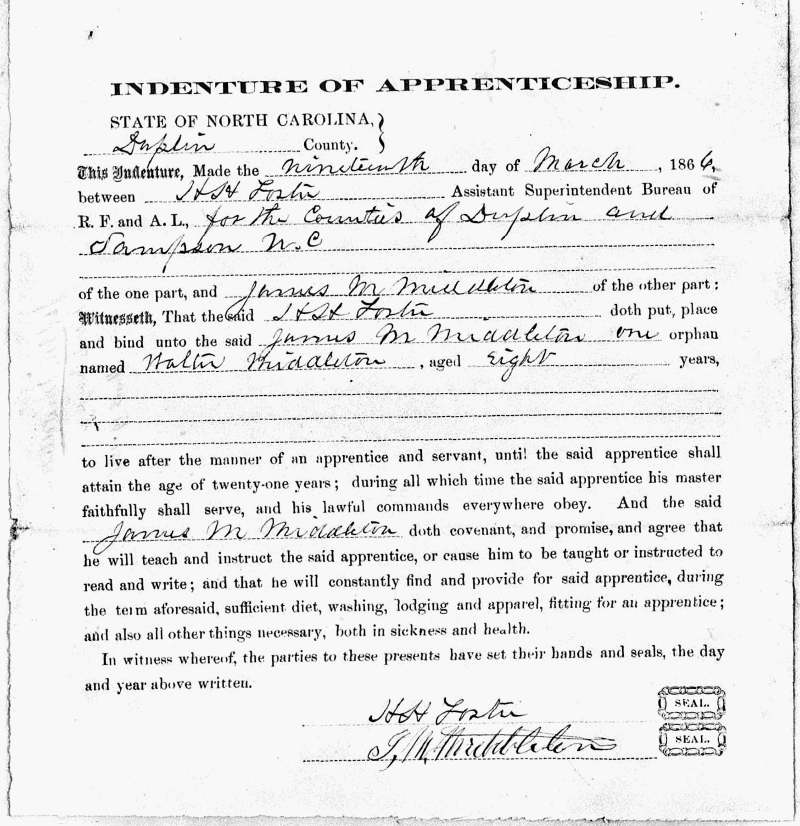 INDENTURE OF APPRENTICESHIP.
STATE OF NORTH CAROLINA, }
Duplin County.
This Indenture, Made the nineteenth day of March, 1866,
between H H Foster Assistant Superintendent Bureau of
R. F. and A. L., for the Counties of Duplin and
Sampson N. C
of the one part, and James M Middleton of the other part:
Witnesseth, That the said H H Foster doth put, place
and bind unto the said James M Middleton one orphan
named Walter Middleton, aged Eight years,
to live after the manner of an apprentice and servant, until the said apprentice shall
attain the age of twenty-one years; during all which time the said apprentice his master
faithfully shall serve, and his lawful commands everywhere obey. And the said
James M Middleton doth covenant, and promise, and agree that
he will teach and instruct the said apprentice, or cause him to be taught or instructed to
read and write; and that he will constantly find and provide for said apprentice, during
the term aforesaid, sufficient diet, washing, lodging and apparel, fitting for an apprentice;
and also all other things necessary, both in sickness and health.
In witness whereof, the parties to these presents have set their hands and seals, the day
and year above written.
H H Foster SEAL.
J, M, Middleton SEAL.